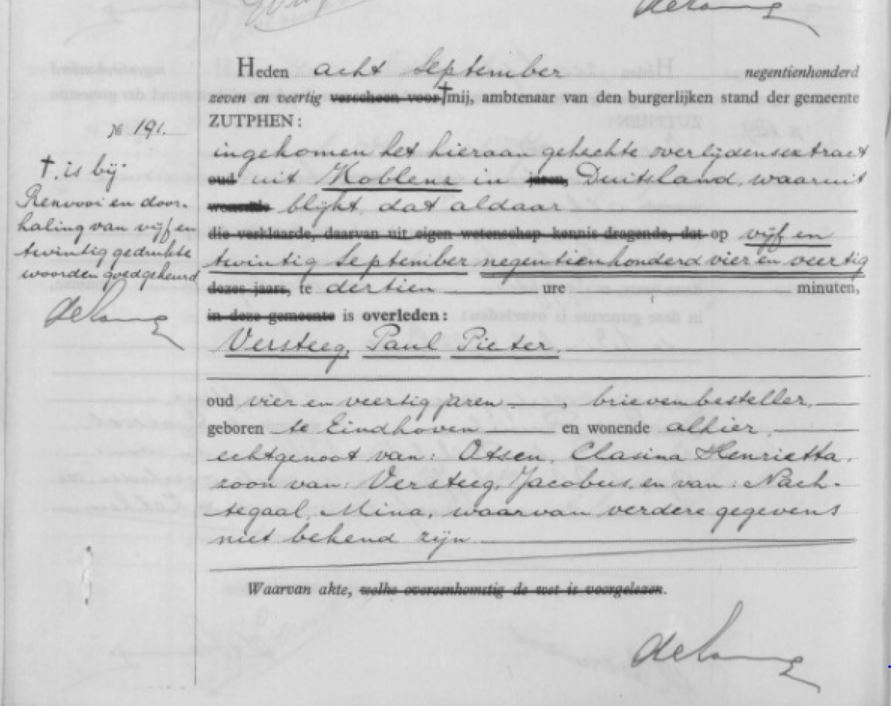 Heden acht September negentienhonderd
zeven en veertig verscheen voor † mij, ambtenaar van den burgerlijken stand der gemeente
ZUTPHEN:
№ 191.
ingekomen het hieraan gehechte overlijdensextract
oud uit Koblenz in jaren, Duitsland, waaruit
wonende blijkt, dat aldaar
die verklaarde, daarvan uit eigen wetenschap kennis dragende, dat op vijf en
twintig September negentienhonderd vier en veertig
dezes jaars, te dertien ure minuten,
in deze gemeente is overleden:
Versteeg, Paul Pieter,
oud vier en veertig jaren, brievenbesteller,
geboren te Eindhoven en wonende alhier,
echtgenoot van: Otsen, Clasina Henrietta,
zoon van: Versteeg, Jacobus, en van: Nach-
tegaal, Mina, waarvan verdere gegevens
niet bekend zijn.
Waarvan akte, welke overeenkomstig de wet is voorgelezen.
† is bij
Renvooi en door-
haling van vijf en
twintig gedrukte
woorden goedgekeurd